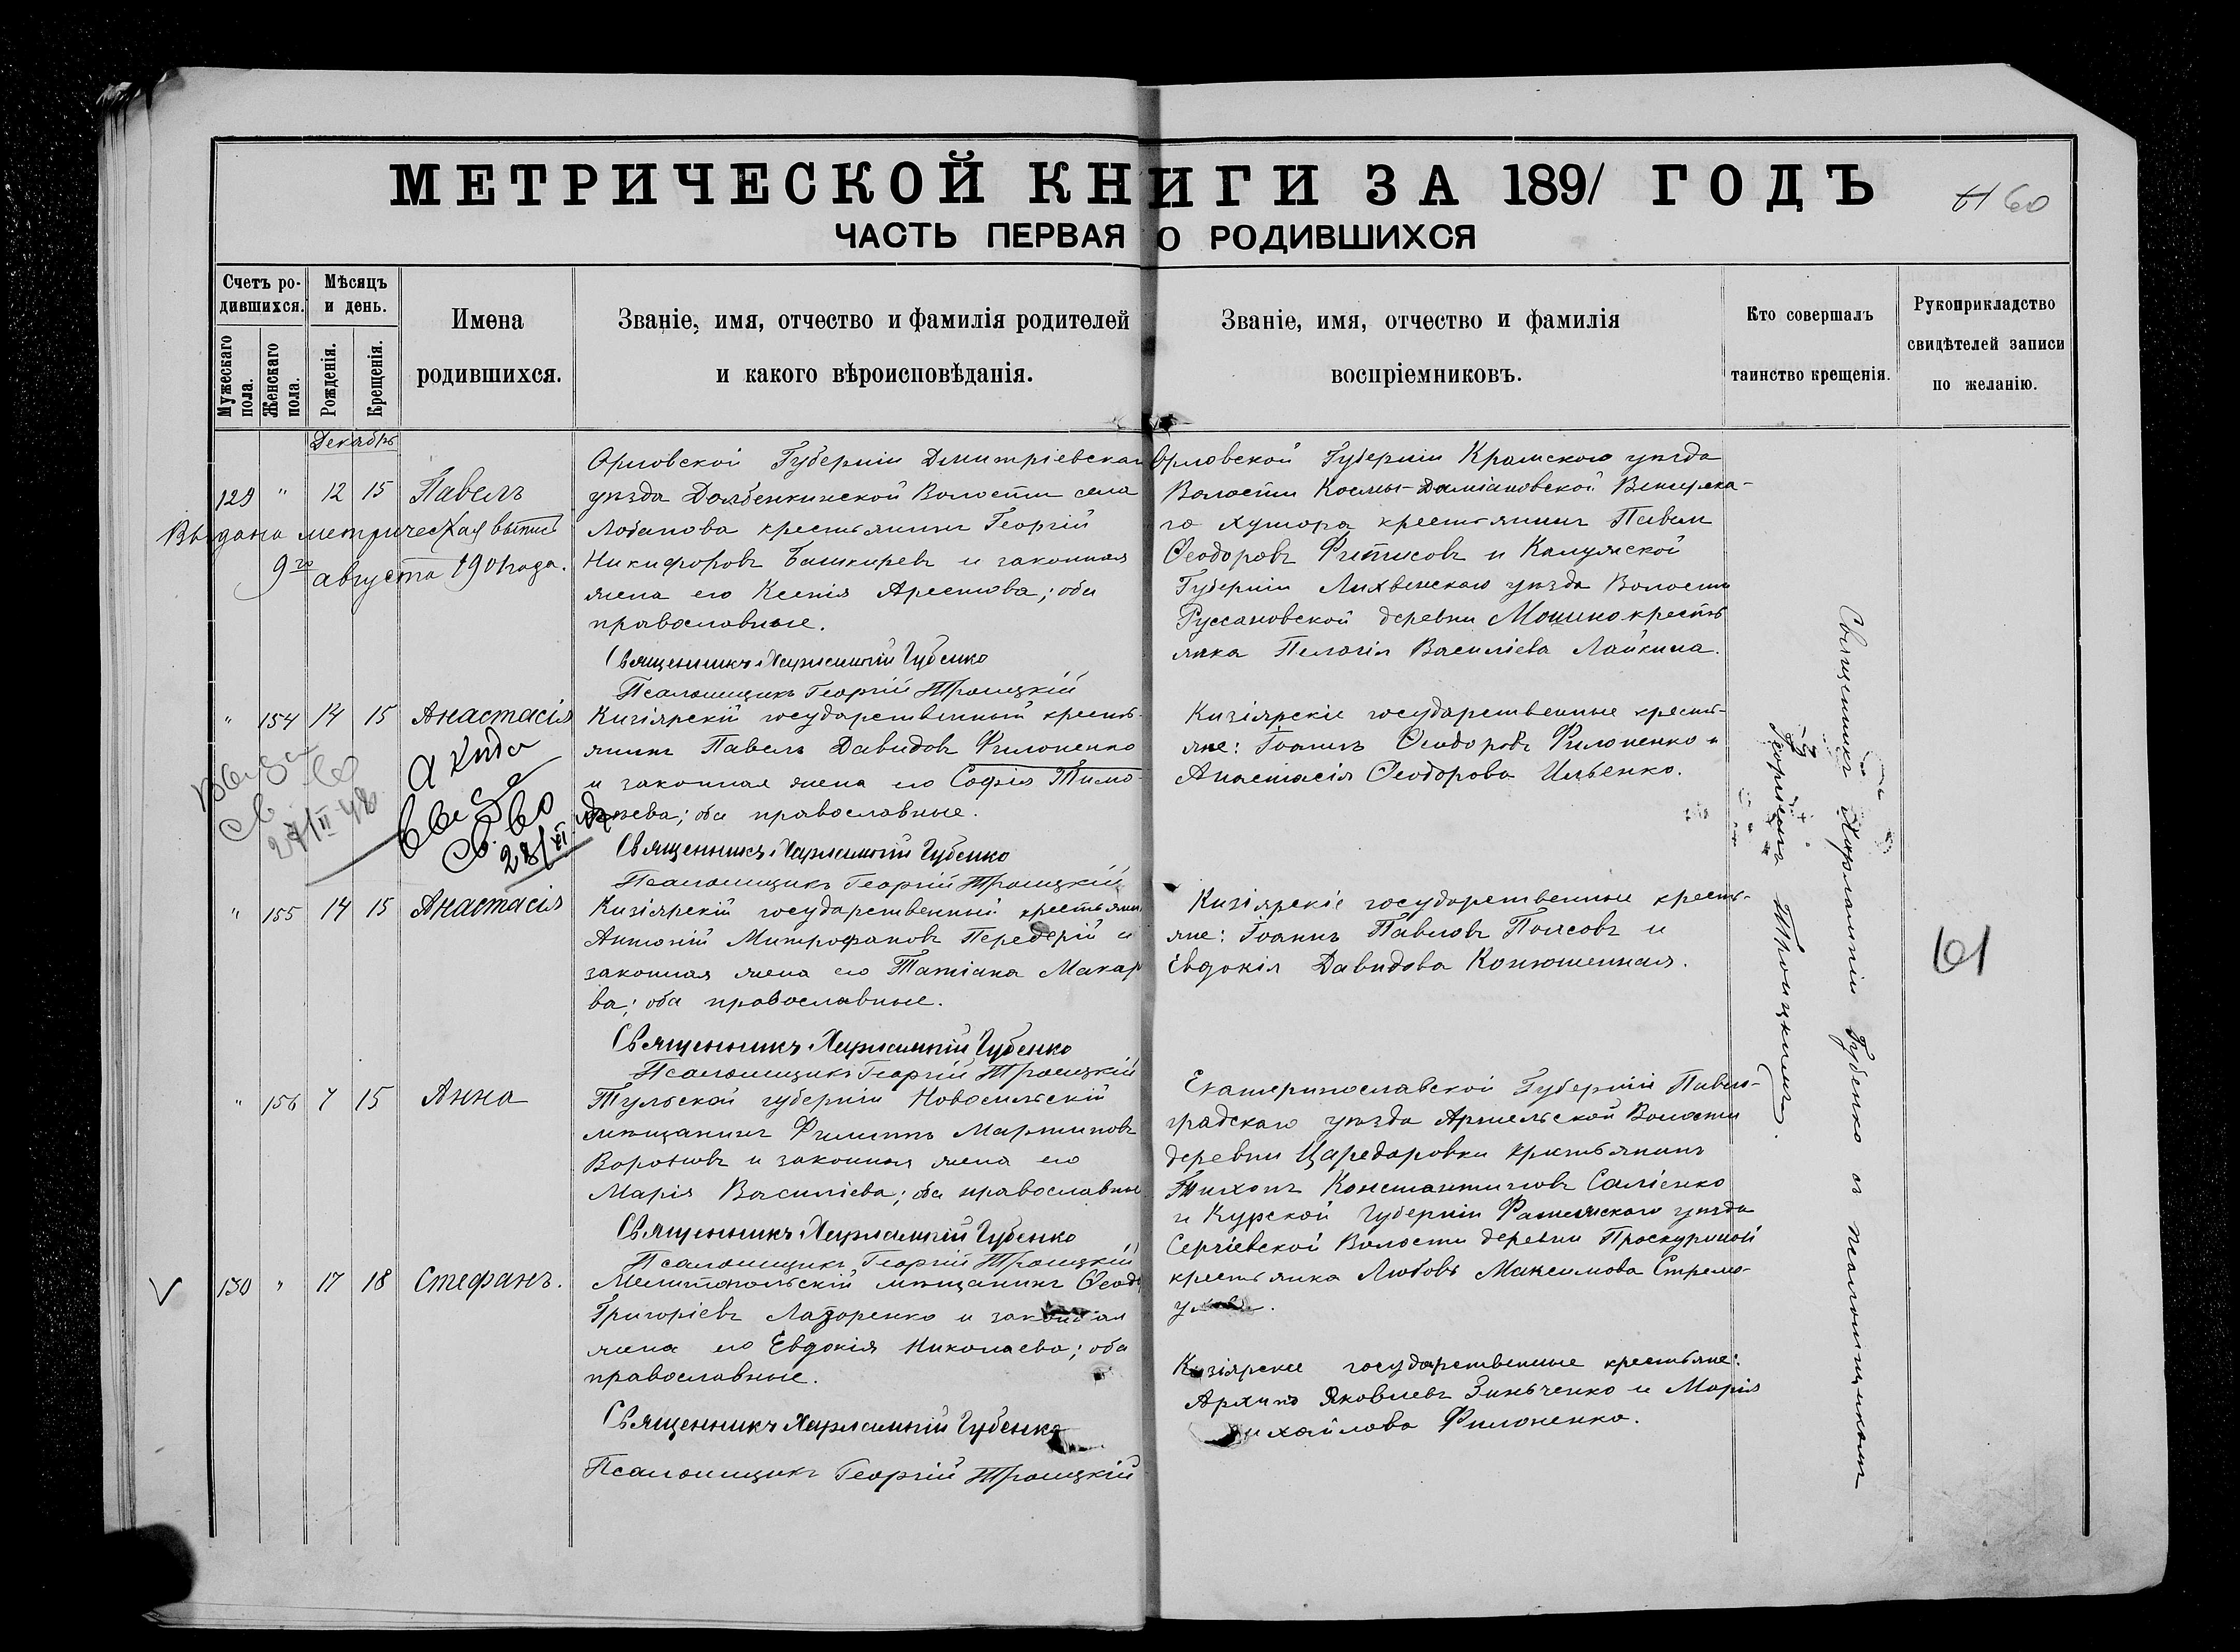 МЕТРИЧЕСКОЙ КНИГИ ЗА 1891 ГОДЪ
61 60
ЧАСТЬ ПЕРВАЯ О РОДИВШИХСЯ
Счетъ ро-
дившихся.
Мужескаго пола.
Женскаго пола.
Мѣсяцъ
и день.
Рожденія.
Крещенія.
Имена
родившихся.
Званіе, имя, отчество и фамилія родителей
и какого вѣроисповѣданія.
Званіе, имя, отчество и фамилія
воспріемниковъ.
Кто совершалъ
таинство крещенія.
Рукоприкладство
свидѣтелей записи
по желанію.
Декабрь
129 " 12 15 Павелъ
Выдана метрическая выпись
9го августа 1901 года.
Орловской Губерніи Дмитріевскаго
уѣзда Долбенкинской Волости села
Лобанова крестьянинъ Георгій
Никифоровъ Башкиревъ и законная
жена его Ксенія Арестова; оба
православные.
Священникъ Харлампій Губенко
Псаломщикъ Георгій Троицкій
Орловской Губерніи Крамскою уѣзда
Волости Космы-Даміановской
го хутора крестьянинъ Павелъ
Ѳеодоровъ и Калужской
Губерніи Лихвенскаго уѣзда Волости
Руссановской деревни Мошино кресть
янка Пелагія Василіева Лайкина.
" 154 14 15 Анастасія
Выда
св-во
27/II 48
выда
св-во
28/XI
Кизіярскій государственный кресть-
янинъ Павелъ Давидовъ Филоненко
и законная жена его Софія Тимо-
ѳеева; оба православные.
Священникъ Харлампій Губенко
Псаломщикъ Георгій Троицкій
Кизіярскіе государственные кресть-
яне: Іоаннъ Ѳеодоровъ Филоненко и
Анастасія Ѳеодорова Ильенко.
" 155 14 15 Анастасія
Кизіярскій государственный крестьянин
Антоній Митрофановъ Передерій и
законная жена его Татіана Макар
ва; оба православные.
Священникъ Харлампій Губенко
Псаломщикъ Георгій Троицкій
Кизіярскіе государственные кресть-
яне: Іоаннъ Павловъ Поясовъ и
Евдокія Давидова Конюшенная.
" 156 7 15 Анна
Тульской губерніи Новосильскій
мѣщанинъ Филиппъ Мартиновъ
Вороновъ и законная жена его
Марія Василіева; оба православные
Священникъ Харлампій Губенко
Псаломщикъ Георгій Троицкій
Екатеринославской Губерніи Павло-
градскаго уѣзда Артельской Волости
деревни Царедаровки крестьянинъ
Тихонъ Константиновъ Саліенко
и Курской Губерніи уѣзда
Сергіевской Волости деревни Проскуриной
крестьянка Любовь Максимова Стремо-
V 130 " 17 18 Стефанъ.
Мелитопольскій мѣщанинъ Ѳеод
Григоріевъ Лазоренко и законная
жена его Евдокія Николаева; оба
православные.
Священникъ Харлампій Губенко
Псаломщикъ Георгій Троицкій
Кизіярскіе государственные крестьяне:
Архипъ Яковлевъ Зинченко и Марія
Михайлова Филоненко.
Священникъ Харлампій Губенко съ псаломщикомъ
Георгіемъ Троицкимъ.
61